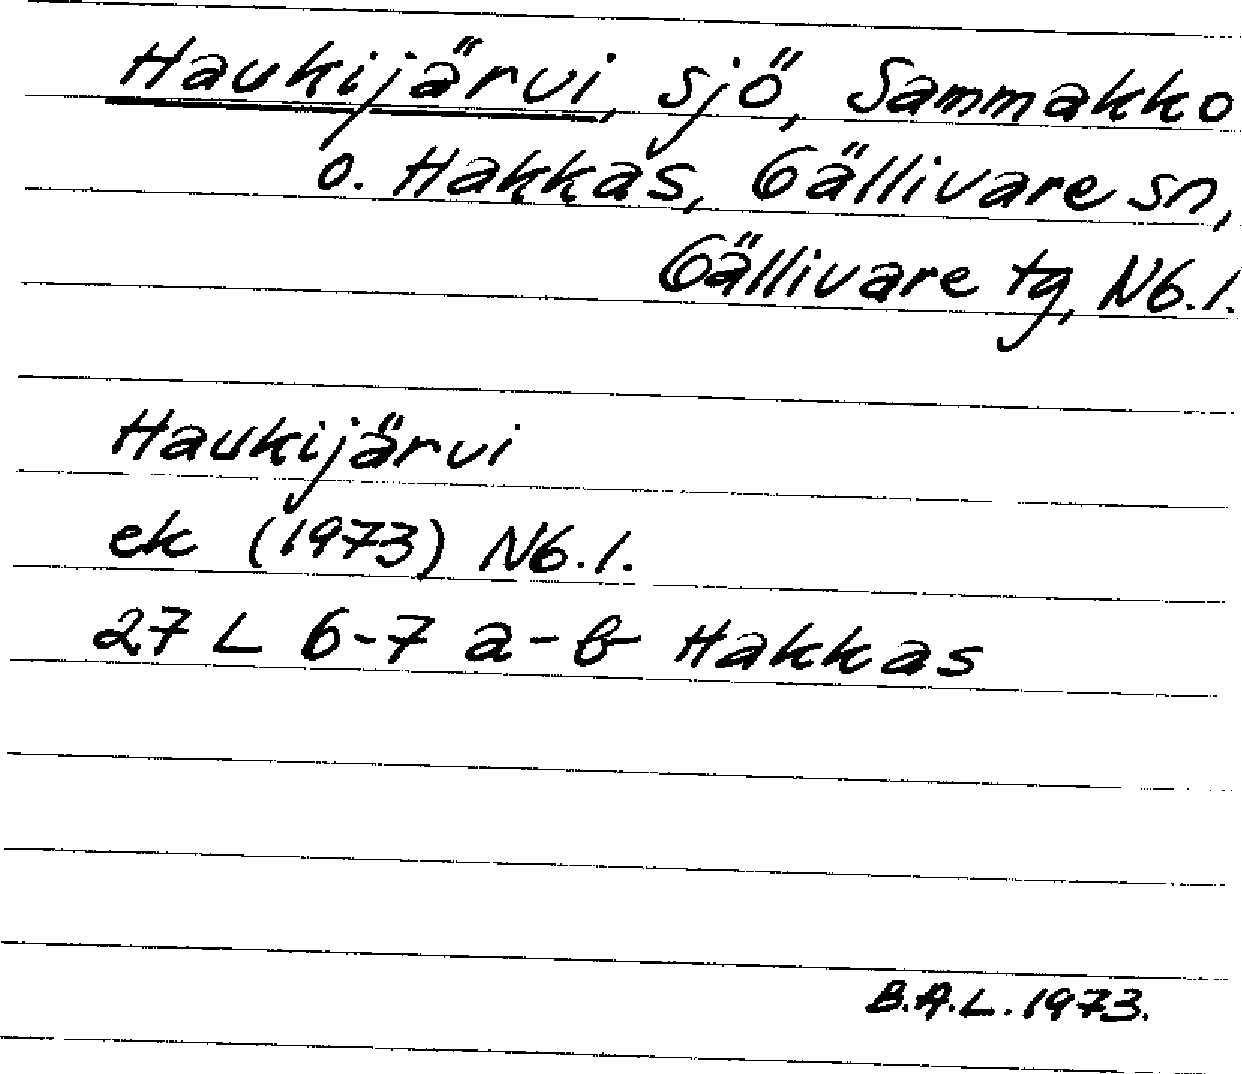 Haukijärvi, sjö, Sammakko
o. Hakkas, Gällivare sn,
Gällivare tg, Nb.l.
Haukijärvi
ek (1973) Nb.l.
27 L 6-7 a-b Hakkas
B.A.L. 1973.